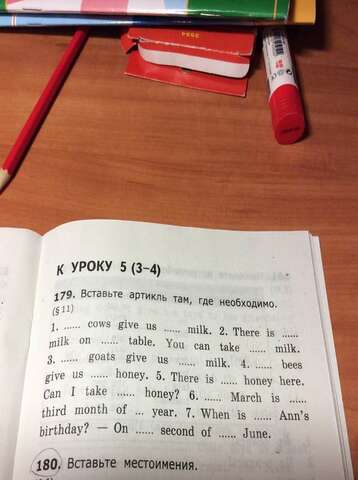 К УРОКУ 5 (3–4)
179. Вставьте артикль там, где необходимо.
(§ 11)
1. ...... cows give us ...... milk. 2. There is ......
milk on ...... table. You can take ...... milk.
3. ...... goats give us ...... milk. 4. ...... bees
give us ...... honey. 5. There is ...... honey here.
Can I take ...... honey? 6. ...... March is ......
third month of ... year. 7. When is ...... Ann's
birthday? — On ...... second of ...... June.
180. Вставьте местоимения.